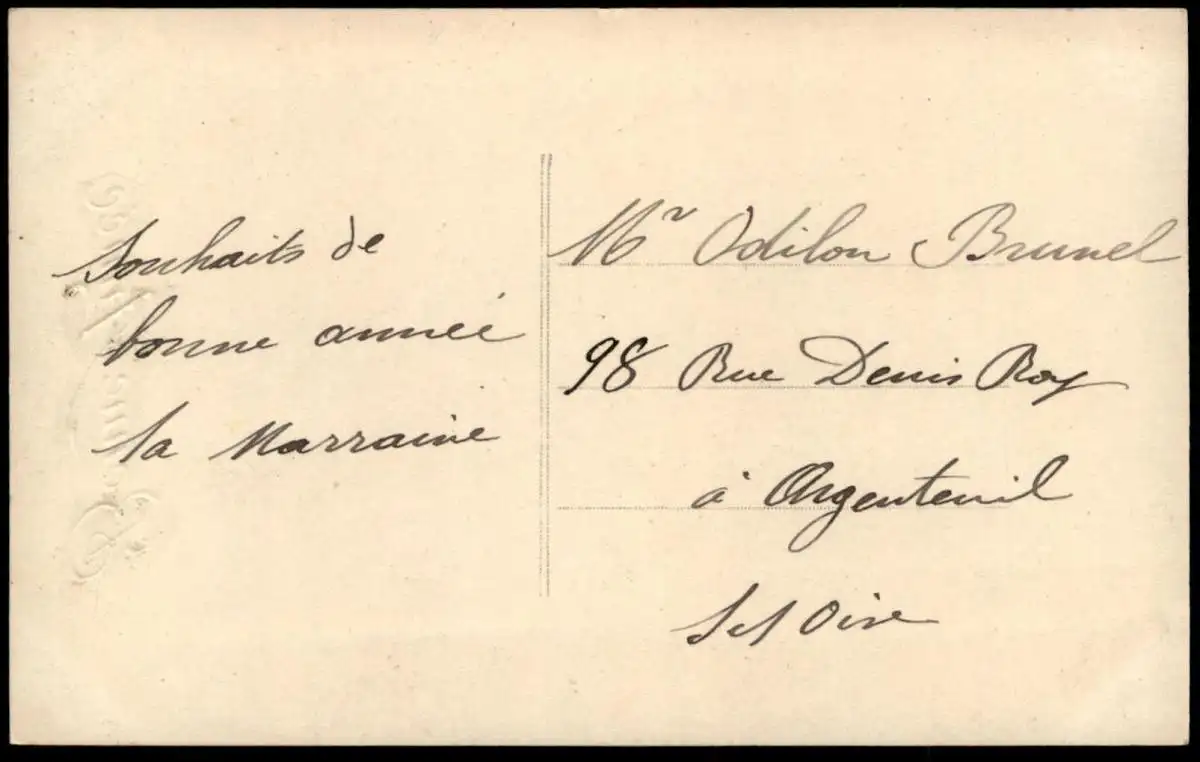 Souhaits de
bonne année
ta Marraine
Mr Odilon Brunel
98 Rue Denis Roy
à Argenteuil
S et Oise